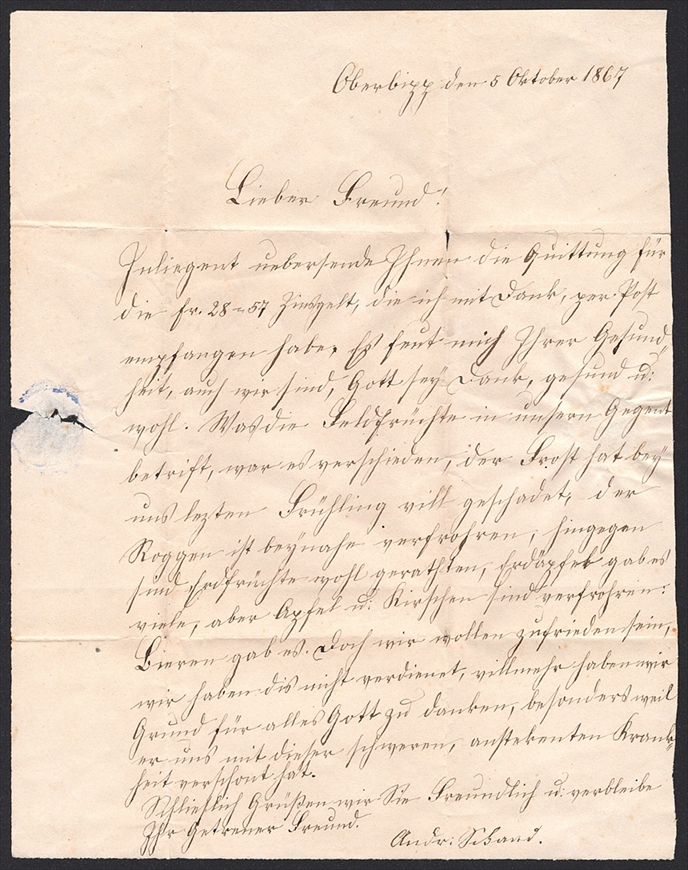 Oberbipp den 5 Oktober 1867
Lieber Freund!
Inliegent uebersende Ihnen die Quittung für
die fr. 28 - 57 Zinsgelt, die ich mit Dank, per Post
empfangen habe, Es freut mich Ihrer Gesund„
heit, auch wir sind, Gott sey Dank, gesund u:
wohl. Was die Feldfrüchte in unsern Gegent
betrift, war es verschieden, der Frost hat bey
uns lezten Frühling vill geschadet, der
Roggen ist beynahe verfrohren, hingegen
sind Erdfrüchte wohl gerathten, Erdäpfel gab es
viele, aber Apfel u: Kirschen sind verfrohren:
Bieren gab es. Doch wir wollen zufrieden sein,
wir haben dis nicht verdienet, villmehr haben wir
Grund für alles Gott zu danken, besonders weil
er uns mit dieser schweren, anstekenten Krank„
heit verschont hat.
Schließlich Grüßen wir Sie Freundlich u: verbleibe
Ihr Getreuer Freund.
Andr: Schaad.